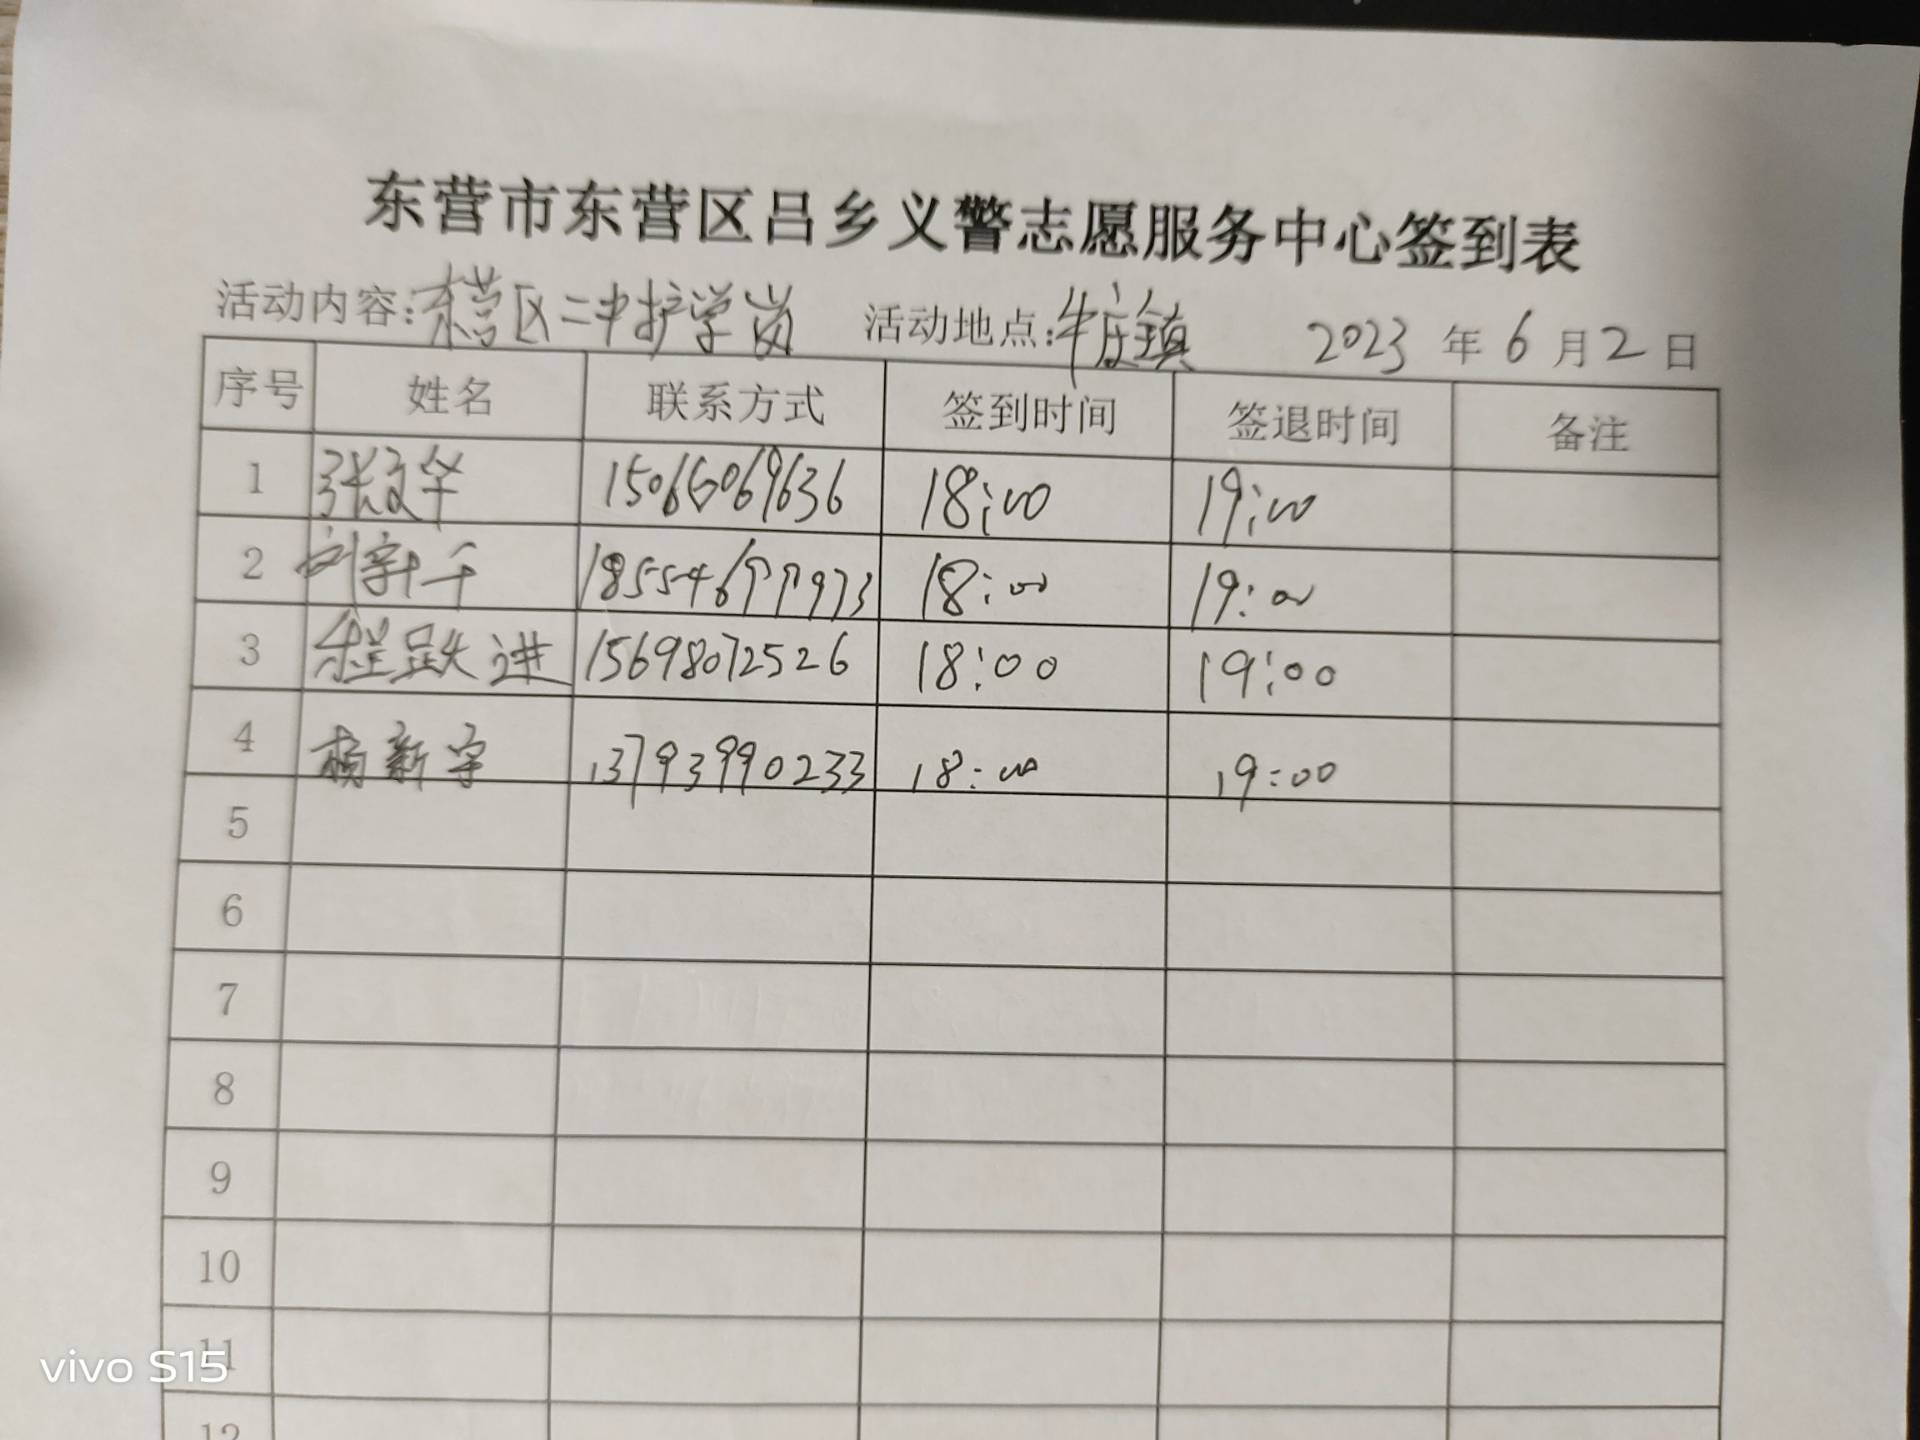 东营市东营区吕乡义警志愿服务中心签到表
活动内容:东营区二中护学岗 活动地点:牛庄镇 2023 年 6 月 2 日
序号 姓名 联系方式 签到时间 签退时间 备注
1 张文华 15066069636 18:00 19:00
2 刘新千 18:00 19:00
3 程跃进 15698072526 18:00 19:00
4 杨新宇 13793990233 18:00 19:00
5
6
7
8
9
10
11
12
vivo S15